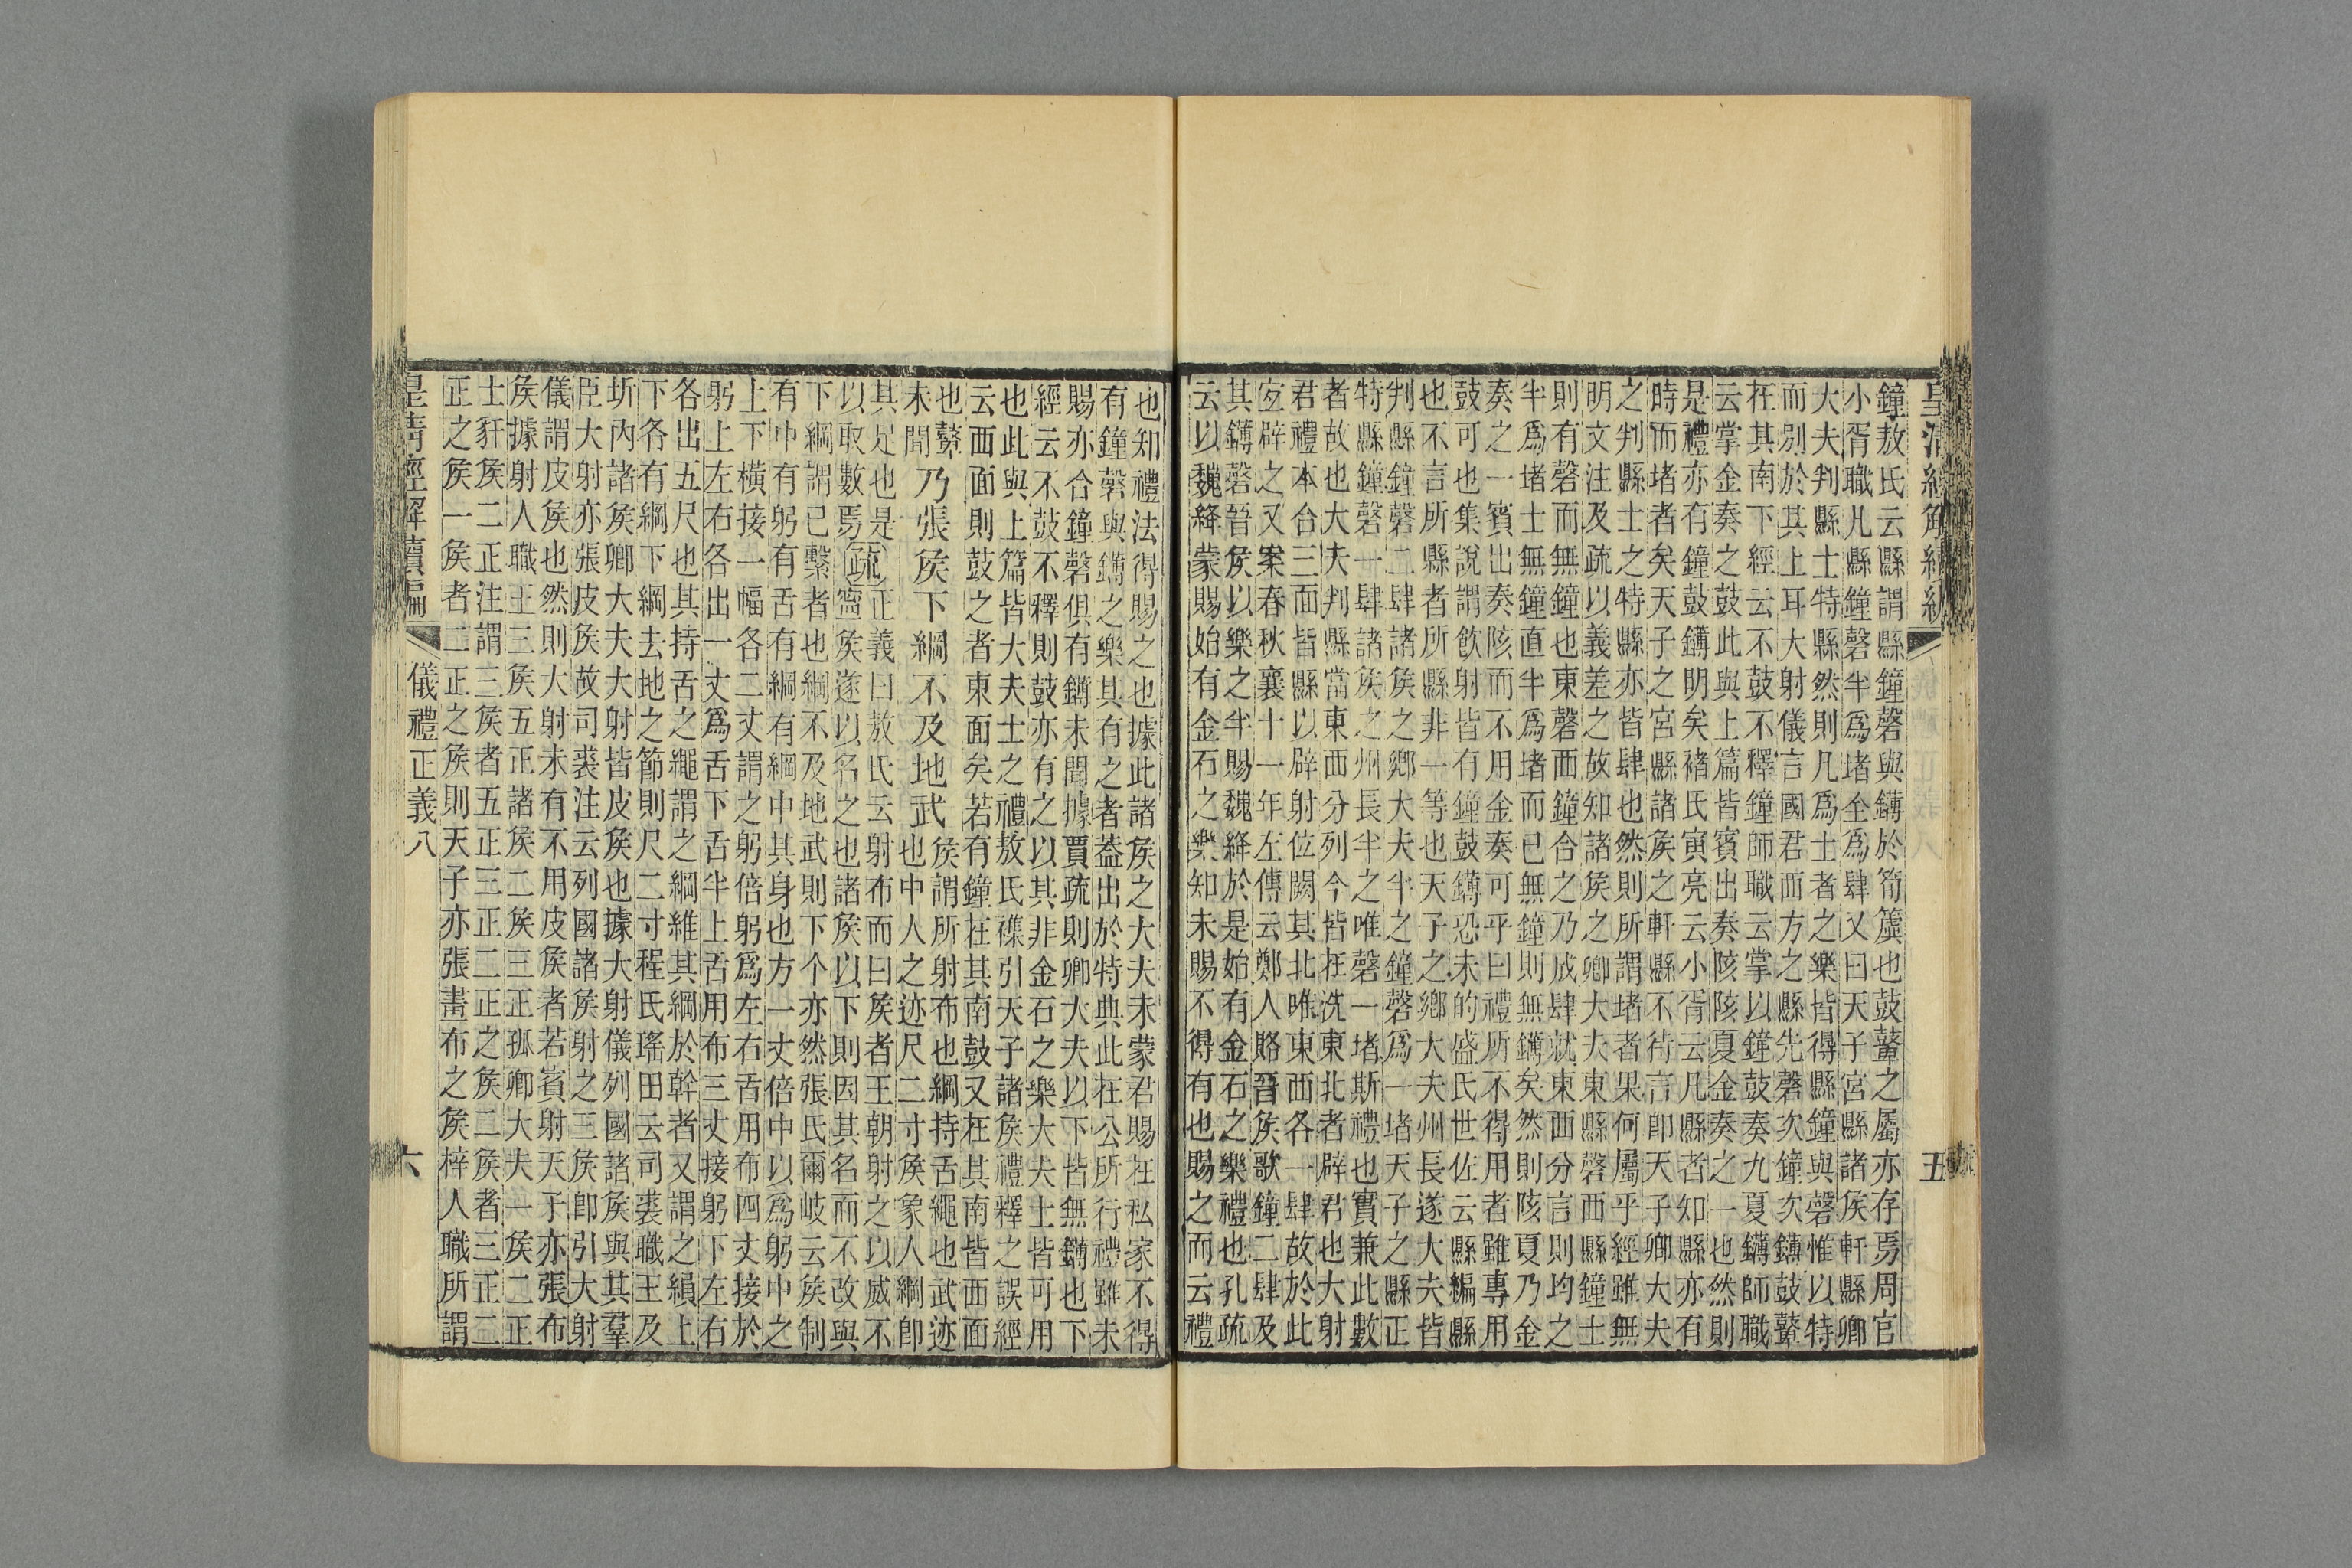 皇清經解續編
五
鐘敖氏云縣謂縣鐘磬與鑮於筍簴也鼓鼙之屬亦存焉周官
小胥職凡縣鐘磬半爲堵全爲肆又曰天子宮縣諸矦軒縣卿
大夫判縣士特縣然則凡爲士者之樂皆得縣鐘與磬惟以特
而別於其上耳大射儀言國君西方之縣先磬次鐘次鑮鼓鼙
在其南下經云不鼓不釋鐘師職云掌以鐘鼓奏九夏鑮師職
云掌金奏之鼓此與上篇皆賓出奏陔陔夏金奏之一也然則
是禮亦有鐘鼓鑮明矣褚氏寅亮云小胥云凡縣者知縣亦有
時而堵者矣天子之宮縣諸矦之軒縣不待言卽天子卿大夫
之判縣士之特縣亦皆肆也然則所謂堵者果何屬乎經雖無
明文注及疏以義差之故知諸矦之卿大夫東縣磬西縣鐘士
則有磬而無鐘也東磬西鐘合之乃成肆就東西分言則均之
半爲堵士無鐘直半爲堵而已無鐘則無鑮矣然則陔夏乃金
奏之一賓出奏陔而不用金奏可乎曰禮所不得用者雖專用
鼓可也集說謂飲射皆有鐘鼓鑮恐未的盛氏世佐云縣編縣
也不言所縣者所縣非一等也天子之鄉大夫州長遂大夫皆
判縣鐘磬二肆諸矦之鄉大夫半之鐘磬爲一堵天子之縣正
特縣鐘磬一肆諸矦之州長半之唯磬一堵斯禮也實兼此數
者故也大夫判縣當東西分列今皆在洗東北者辟君也大射
君禮本合三面皆縣以辟射位闕其北唯東西各一肆故於此
宐辟之又案春秋襄十一年左傳云鄭人賂晉矦歌鐘二肆及
其鑮磬晉矦以樂之半賜魏絳於是始有金石之樂禮也孔疏
云以魏絳蒙賜始有金石之樂知未賜不得有也賜之而云禮
也知禮法得賜之也據此諸矦之大夫未蒙君賜在私家不得
有鐘磬與鑮之樂其有之者葢出於特典此在公所行禮雖未
賜亦合鐘磬俱有鑮未聞據賈疏則卿大夫以下皆無鑮也下
經云不鼓不釋則鼓亦有之以其非金石之樂大夫士皆可用
也此與上篇皆大夫士之禮敖氏襍引天子諸矦禮釋之誤經
云西面則鼓之者東面矣若有鐘在其南鼓又在其南皆西面
也鼙
未聞
乃張矦下綱不及地武
矦謂所射布也綱持舌繩也武迹
也中人之迹尺二寸矦象人綱卽
其足也是
以取數焉
疏
正義曰敖氏云射布而曰矦者王朝射之以威不
寧矦遂以名之也諸矦以下則因其名而不改與
下綱謂已繫者也綱不及地武則下个亦然張氏爾岐云矦制
有中有躬有舌有綱有縜中其身也方一丈倍中以爲躬中之
上下橫接一幅各二丈謂之躬倍躬爲左右舌用布四丈接於
躬上左右各出一丈爲舌下舌半上舌用布三丈接躬下左右
各出五尺也其持舌之繩謂之綱維其綱於幹者又謂之縜上
下各有綱下綱去地之節則尺二寸程氏瑤田云司裘職王及
圻內諸矦卿大夫大射皆皮矦也據大射儀列國諸矦與其羣
臣大射亦張皮矦故司裘注云列國諸矦射之三矦卽引大射
儀謂皮矦也然則大射未有不用皮矦者若賓射天子亦張布
矦據射人職王三矦五正諸矦二矦三正孤卿大夫一矦二正
士豻矦二正注謂三矦者五正三正二正之矦二矦者三正二
正之矦一矦者二正之矦則天子亦張畫布之矦梓人職所謂
皇淸經解續編
儀禮正義八
六